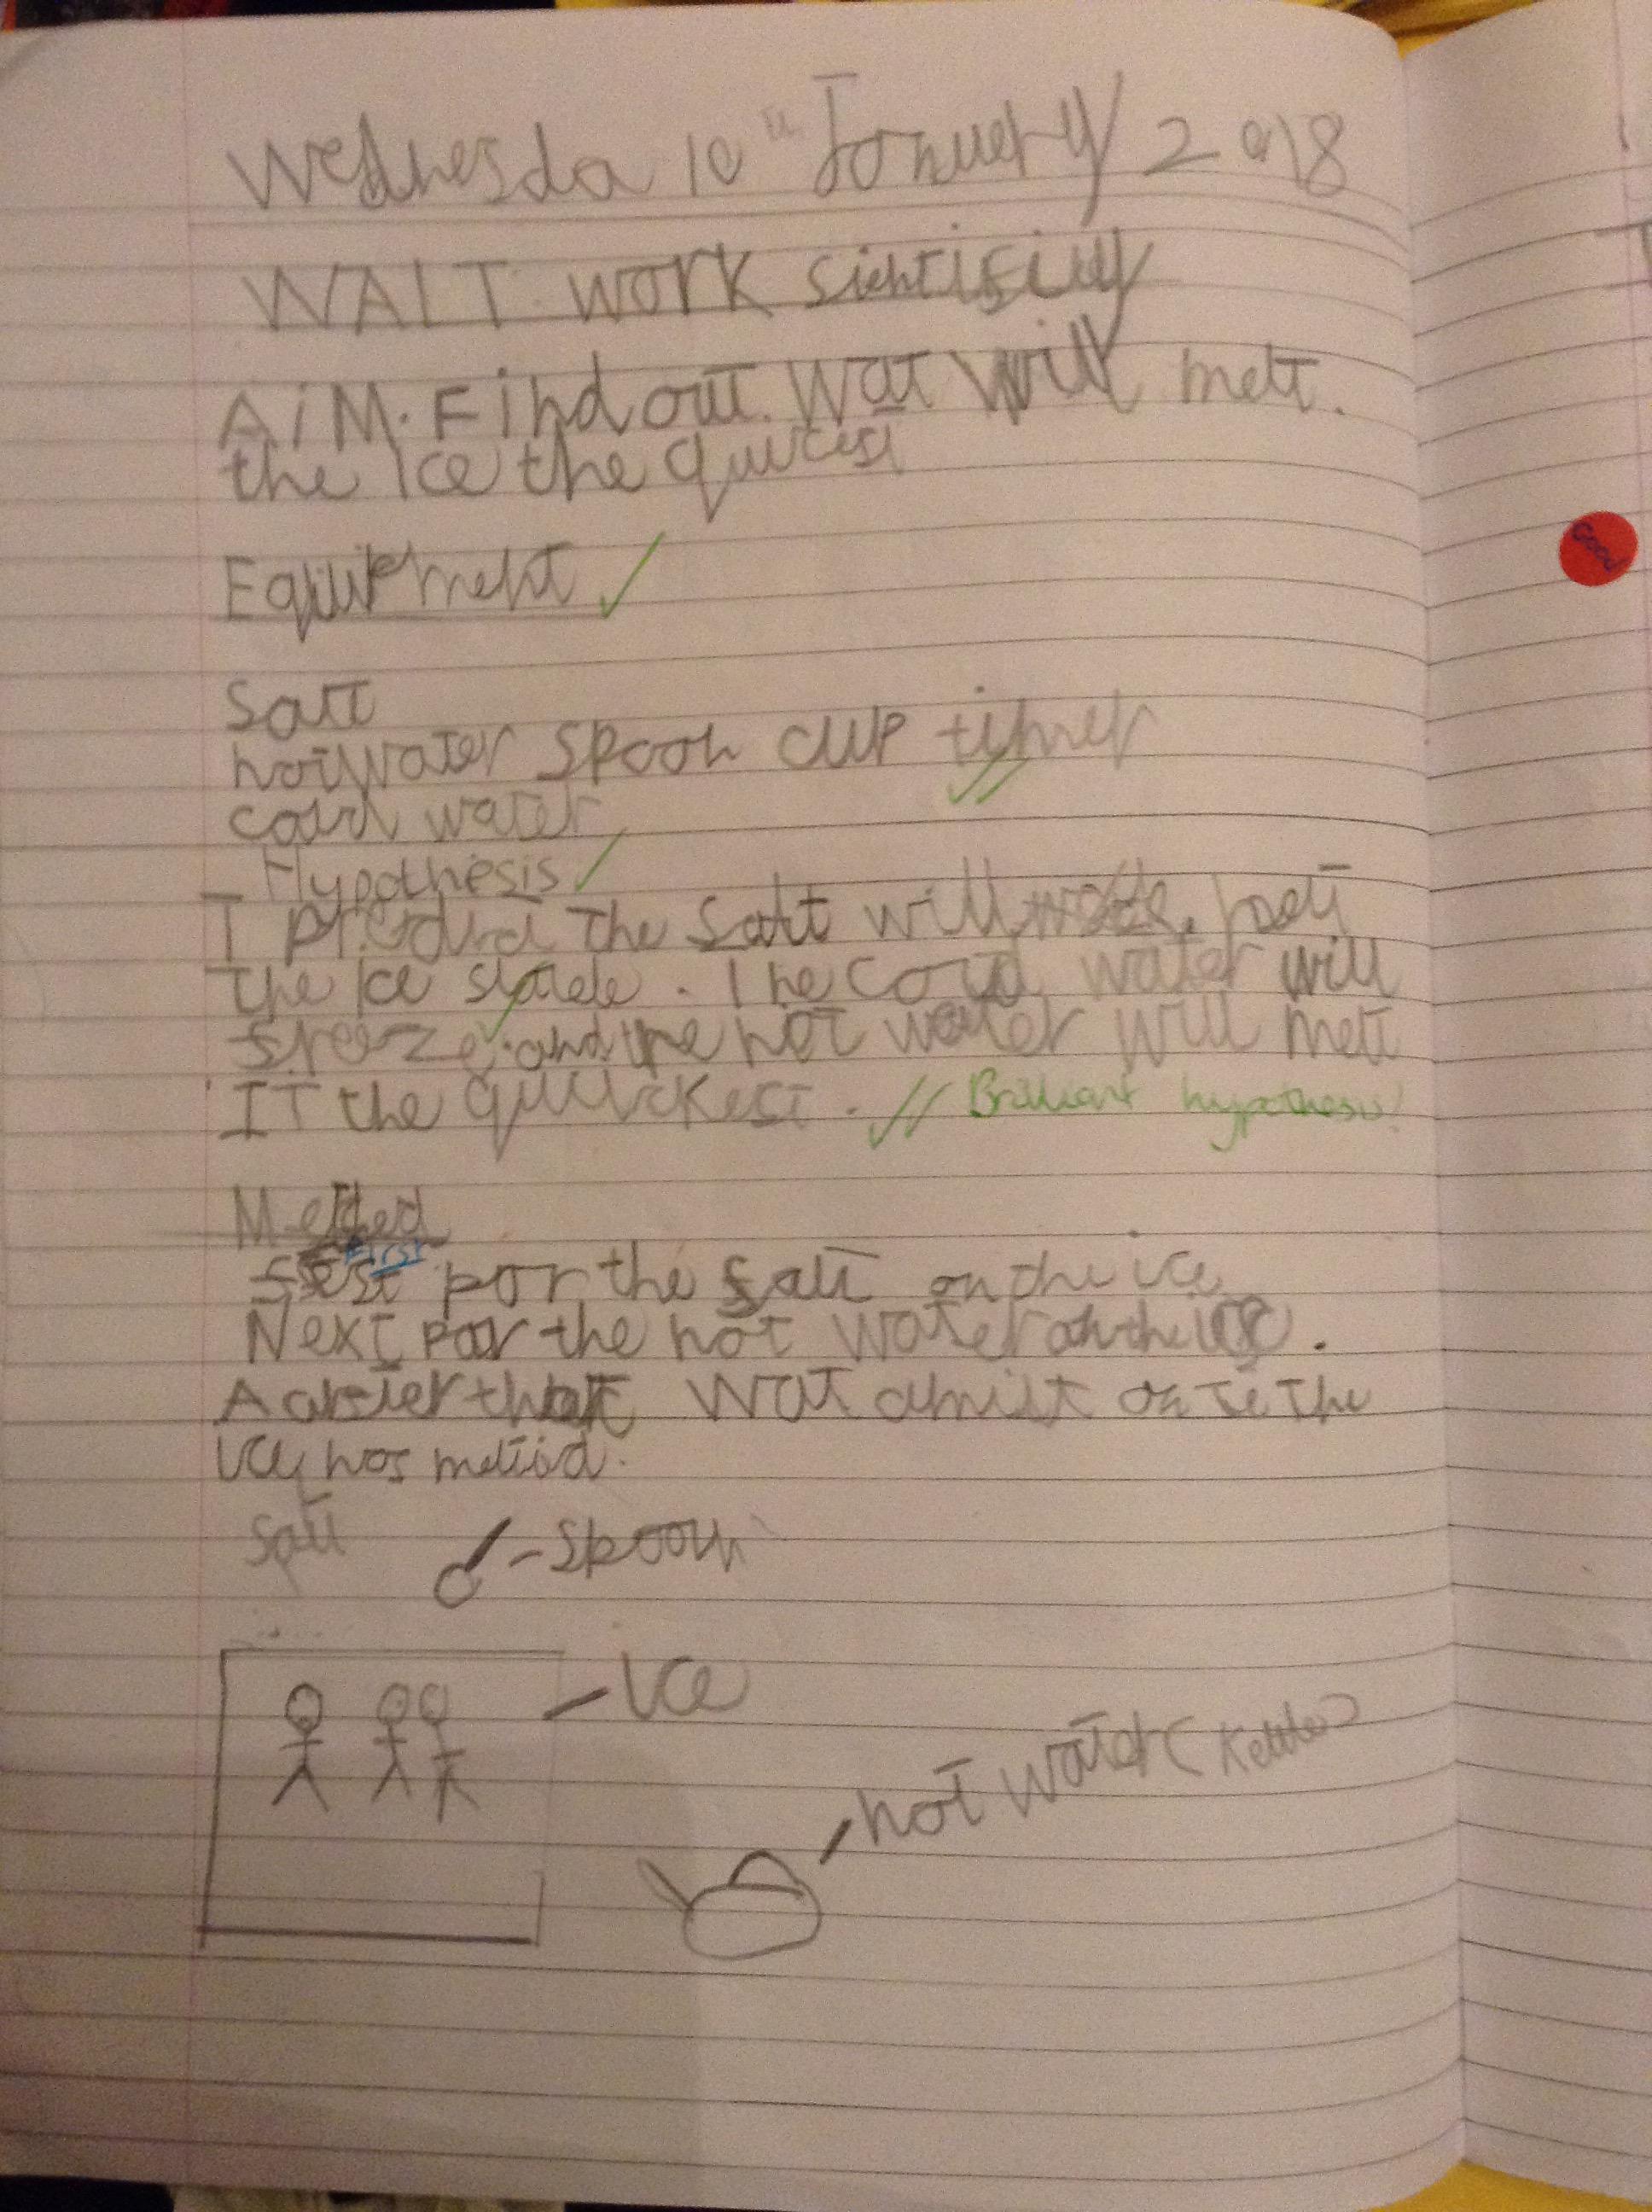 Wednesda 10th Januery 2018
WALT work sientifilly
AiM. Find out. Wat will melt.
the Ice the quicest
Equipement
Salt
hot water spoon cup timer
could water
Hypothesis
I the salt will melt
the ice. The could water will
freeze. and the hot water will melt
IT the quickest. Brilliant hypothesis!
First por the salt on the ice
Next por the hot water on the ice.
A after that wat the
ice has
Salt - spoon
- Ice
hot water (Kettle)
Good